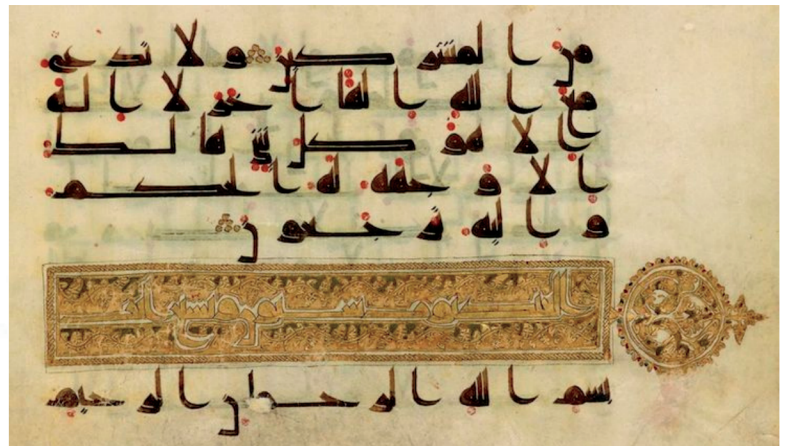 من المشركين ولا تدع
مع الله الها اخر لا اله
الا هو كل شى هالك
الا وجهه له الحكم
و اليه ترجعون
العنكبوت ستون وتسع
بسم الله الرحمن الرحيم